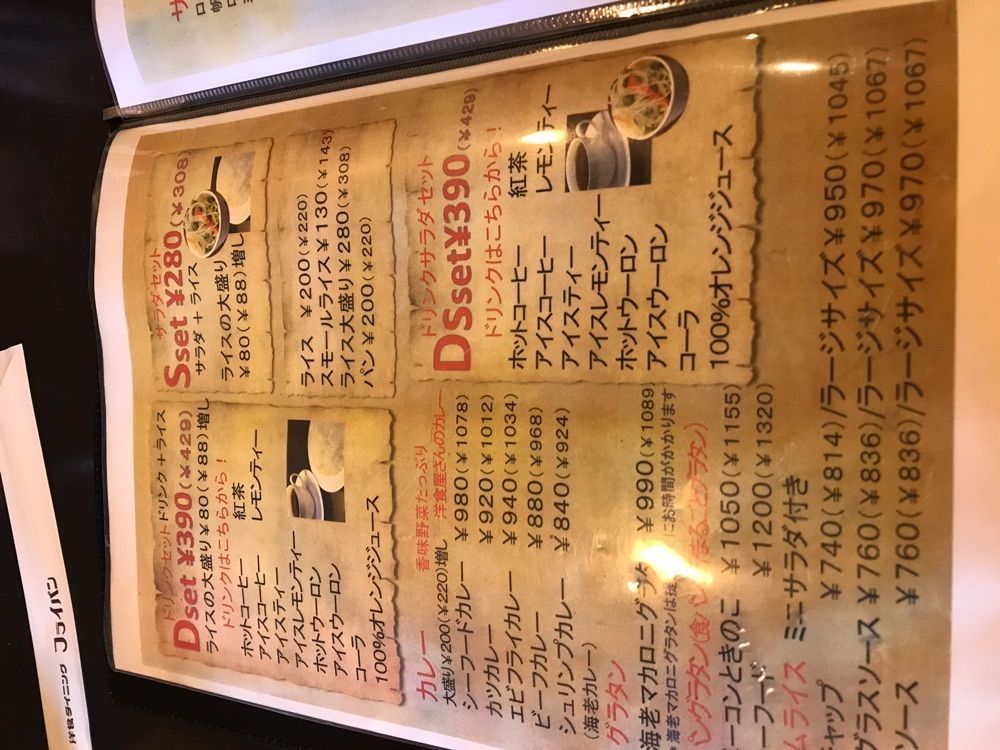 ドリンクセット ドリンク＋ライス
Dset ¥390(¥429)
ライスの大盛り¥80(¥88)増し
ドリンクはこちらから！
ホットコーヒー 紅茶
アイスコーヒー レモンティー
アイスティー
アイスレモンティー
ホットウーロン
アイスウーロン
コーラ
100%オレンジジュース
サラダセット
Sset ¥280(¥308)
サラダ＋ライス
ライスの大盛り
¥80(¥88)増し
ライス ¥200(¥220)
スモールライス ¥130(¥143)
ライス大盛り ¥280(¥308)
パン ¥200(¥220)
ドリンクサラダ セット
DSset¥390(¥429)
ドリンクはこちらから！
ホットコーヒー 紅茶
アイスコーヒー レモンティー
アイスティー
アイスレモンティー
ホットウーロン
アイスウーロン
コーラ
100%オレンジジュース
カレー 香味野菜たっぷり 洋食屋さんのカレー
大盛り¥200(¥220)増し
シーフードカレー ¥980(¥1078)
カツカレー ¥920(¥1012)
エビフライカレー ¥940(¥1034)
ビーフカレー ¥880(¥968)
シュリンプカレー ¥840(¥924)
(海老カレー)
グラタン
海老マカロニグラタン ¥990(¥1089)
海老マカロニグラタンは にお時間がかかります
ングラタン(食パン まるごとグラタン)
ーコンときのこ ¥1050(¥1155)
ーフード ¥1200(¥1320)
ムライス ミニサラダ付き
チャップ ¥740(¥814)/ラージサイズ¥950(¥1045)
グラスソース ¥760(¥836)/ラージサイズ¥970(¥1067)
ソース ¥760(¥836)/ラージサイズ¥970(¥1067)
洋食ダイニング フライパン